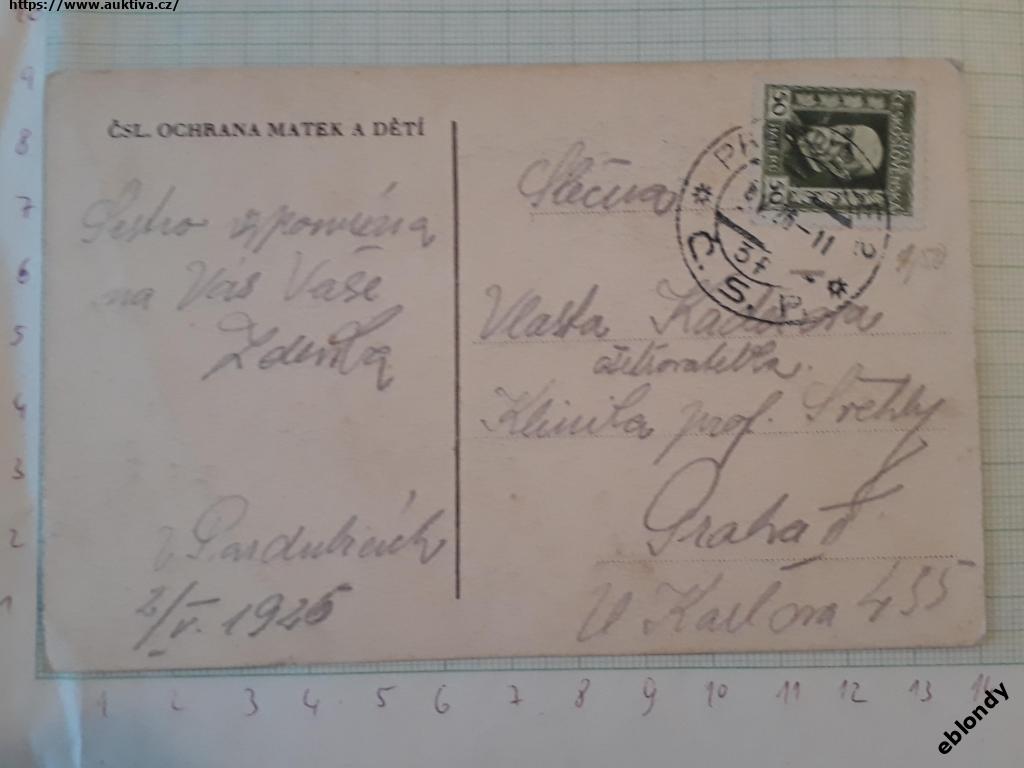 https://www.auktiva.cz/
ČSL. OCHRANA MATEK A DĚTÍ
vzpomíná
na Vás Vaše
Zdenka
v Pardubicích
2/V. 1926
Slečna
Vlasta
ošetřovatelka.
Klinika prof.
Praha
U Karlova 455
50 50
Č. S. P.
9
8
7
6
5
4
3
2
1
1 2 3 4 5 6 7 8 9 10 11 12 13 14
eblondy